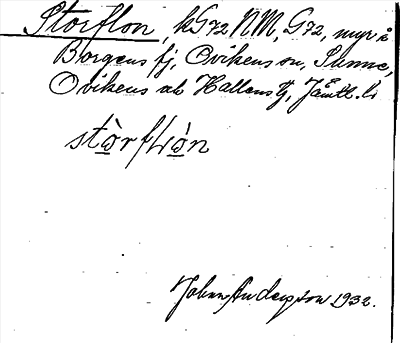 Storflon, kG72NM, G72, myr i
Borgens fj, Ovikens sn, Sunne,
Ovikens ab Hallens tg, Jämtl. l.
stòrfLòn
Johan Anderson 1932.